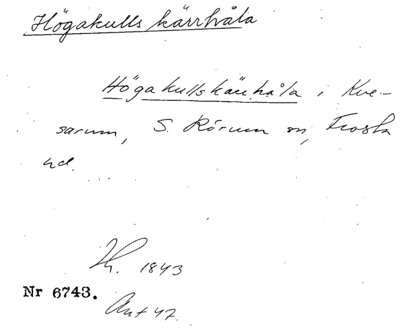 Högakulls kärrhåla
Högakullskärrhåla i Kve-
sarum, S. Rörum sn, Frosta
hd.
1843
Nr 6743.
Ant 47.